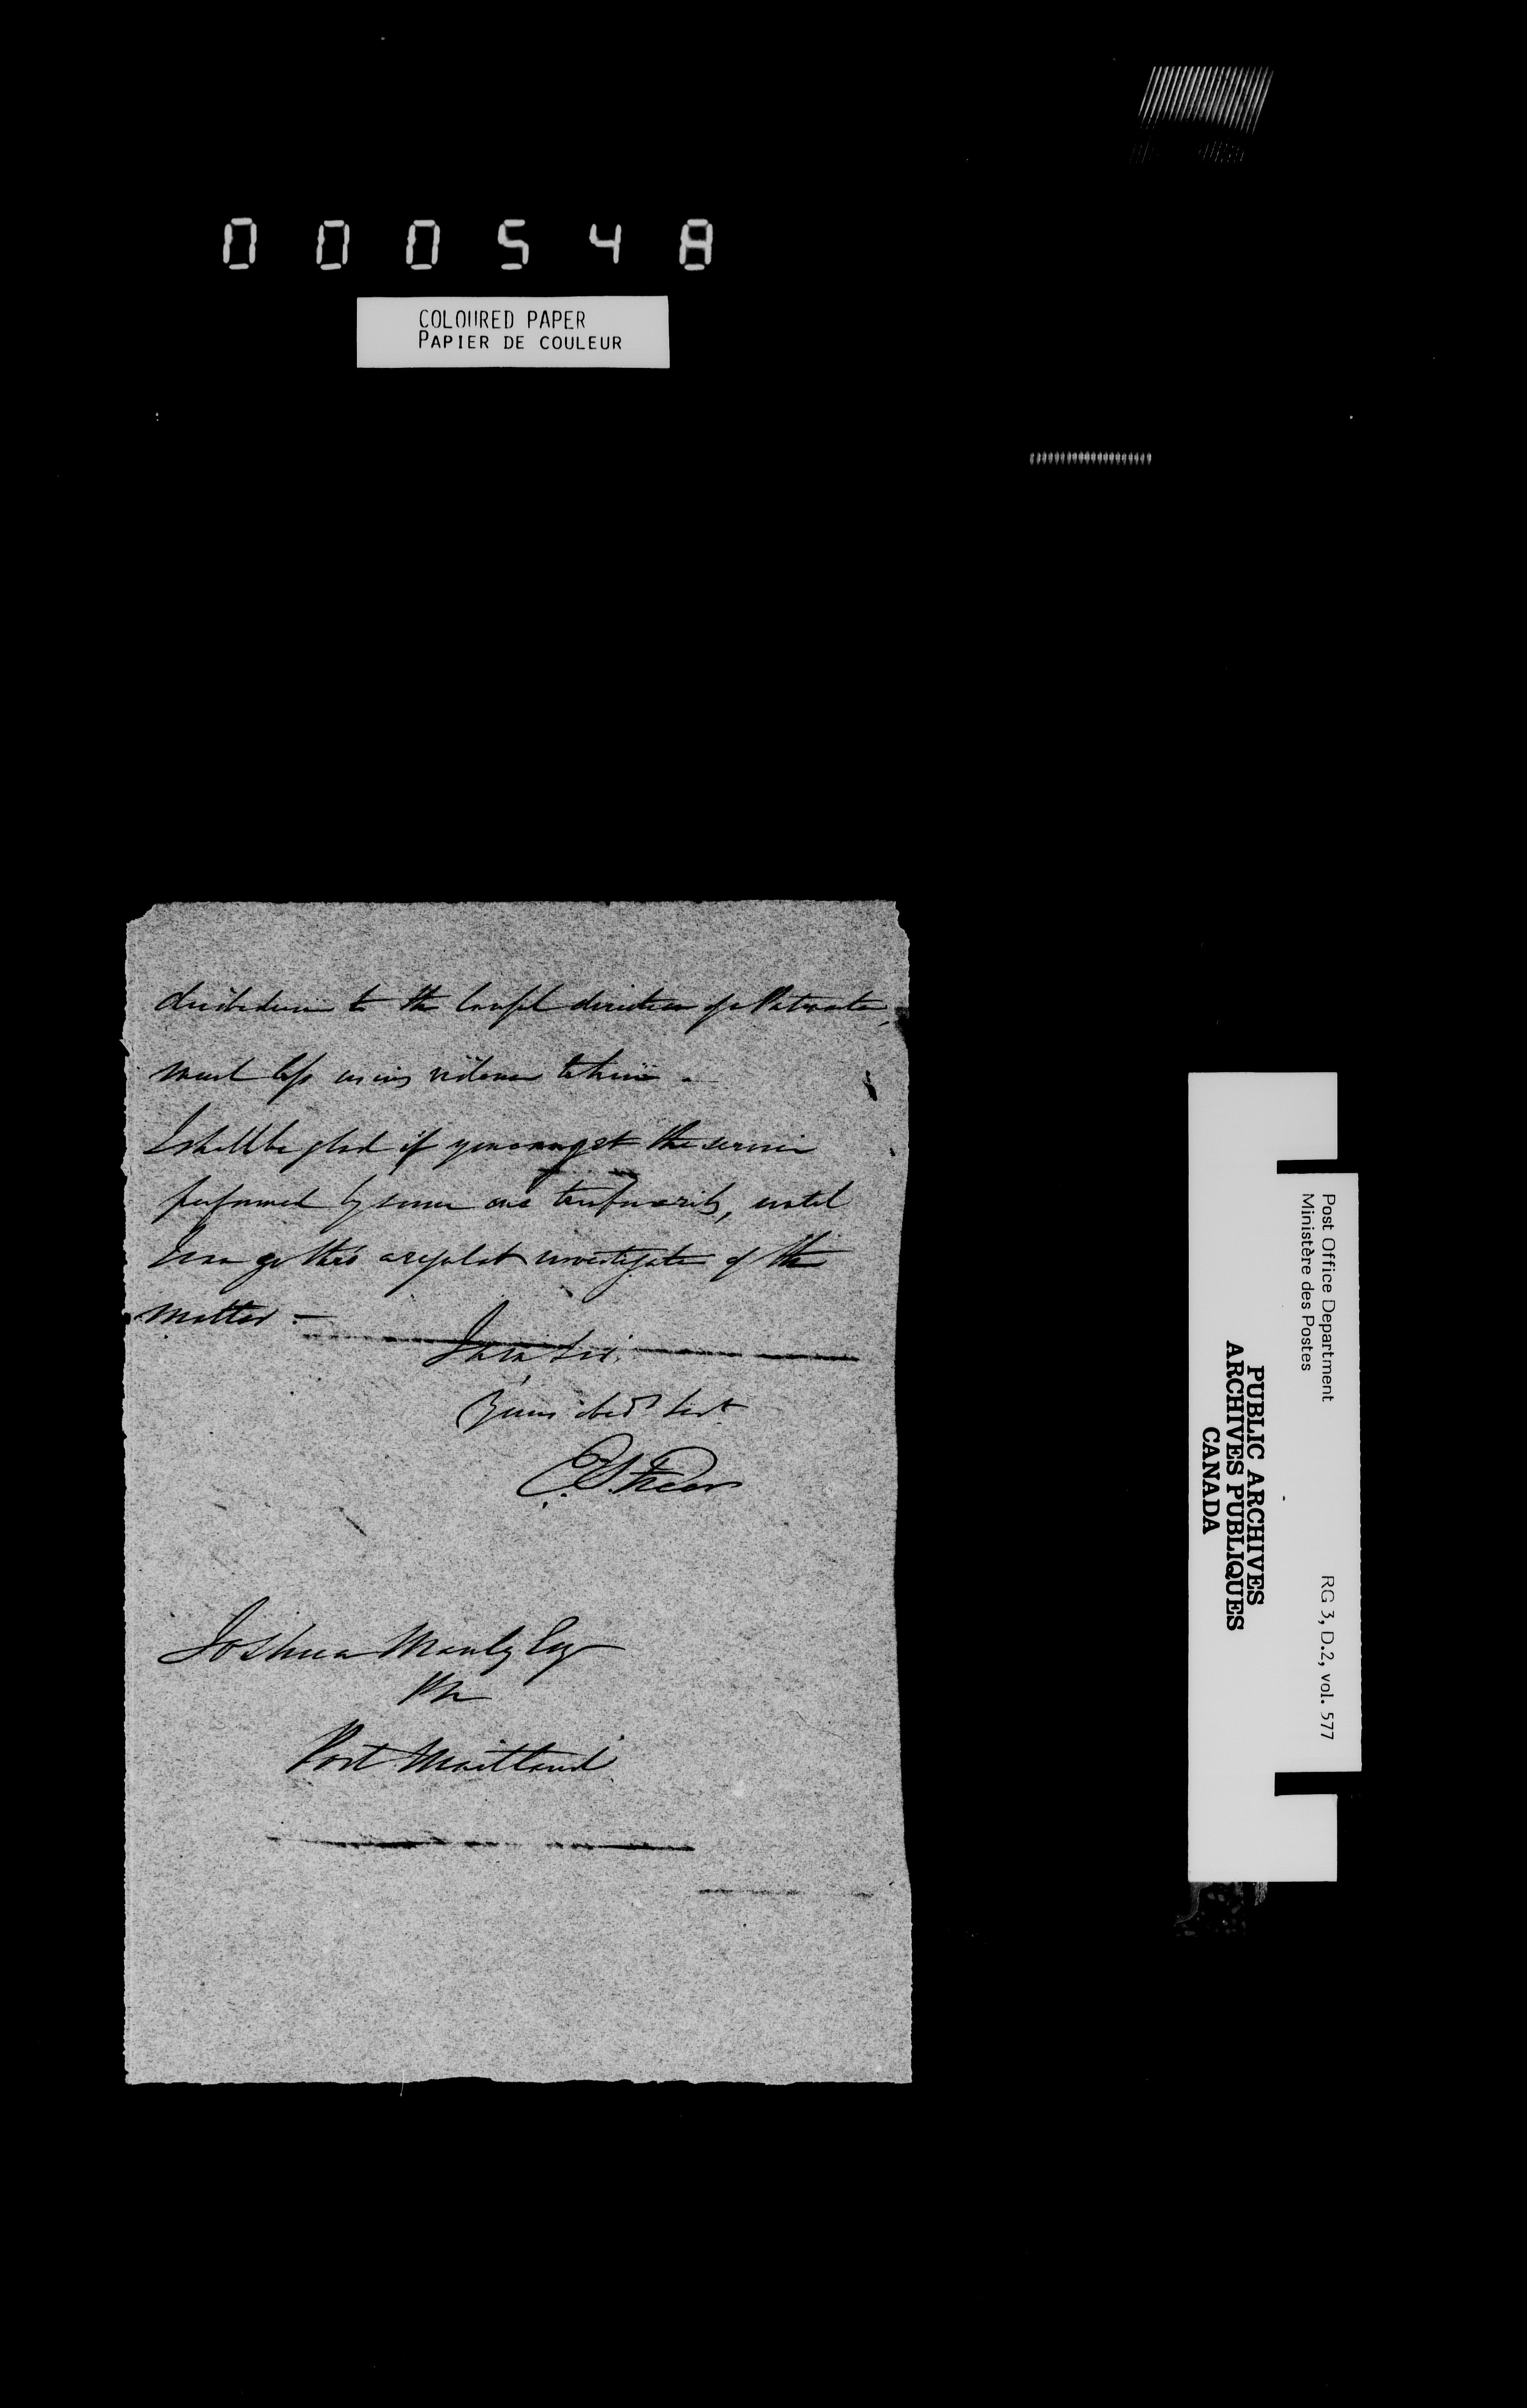 000548
COLOURED PAPER
PAPIER DE COULEUR
to the lawful direction of a Postmaster,
much less using violence to him.
I shall be glad if you can get the service
performed by some one temporarily, until
I can get this a regular investigation of the
matter —
I am Sir,
Your obedt Sert
E.S. Freer
Joshua Manly Esq
PM
Port Maitland
Post Office Department
Ministère des Postes
RG 3, D.2, vol. 577
PUBLIC ARCHIVES
ARCHIVES PUBLIQUES
CANADA